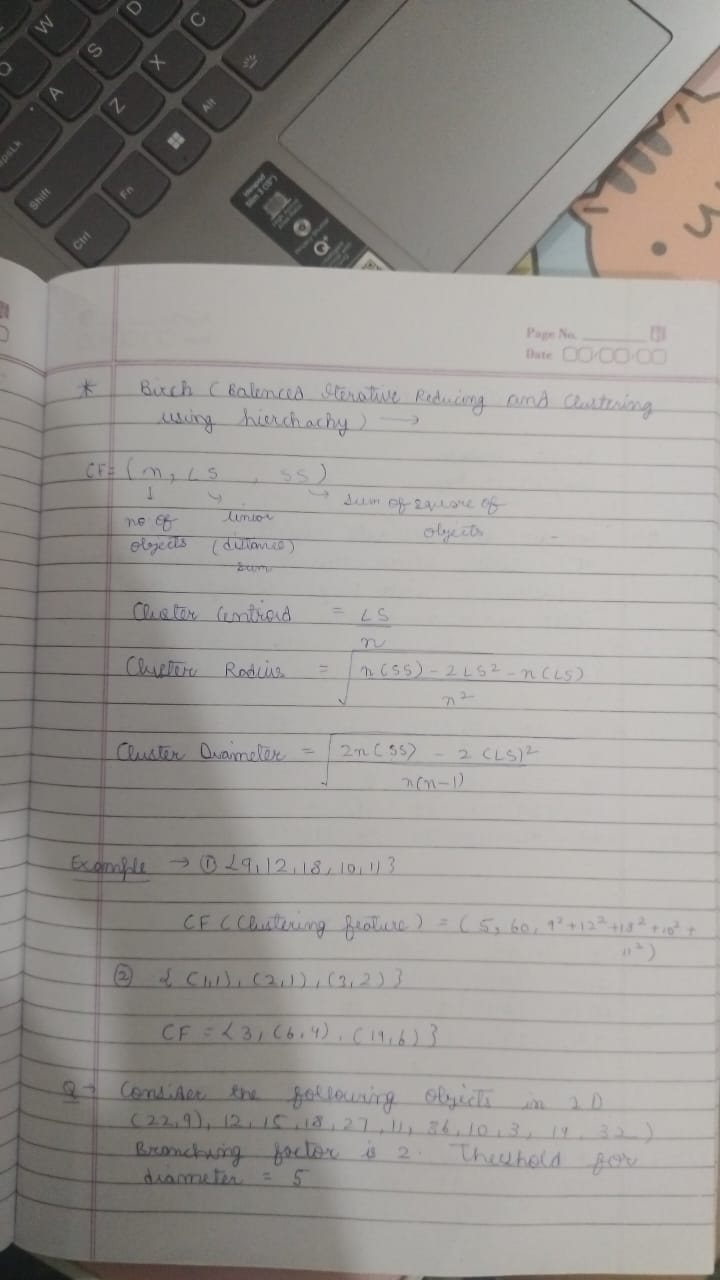 Q
W
D
C
A
S
X
psLk
Z
Alt
Shift
Fn
Ctrl
Page No.
Date
* Birch (Balenced Iterative Reducing and Clustering
using hierchachy) →
CF = (n, LS, SS)
↓ ↘ → sum of square of
no. of linear objects
objects (distance)
sum
Cluster Centroid = LS
n
Cluster Radius = √ n(SS) - 2LS² - n(LS)
n²
Cluster Diameter = √ 2n(SS) - 2(LS)²
n(n-1)
Example → ① {9, 12, 18, 10, 11}
CF (Clustering feature) = (5, 60, 9² + 12² + 18² + 10² +
11²)
② { (1,1), (2,1), (3,2) }
CF = {3, (6,4), (14,6) }
Q → Consider the following objects in 2D
(22, 9), 12, 15, 18, 27, 11, 36, 10, 3, 14, 32)
Branching factor is 2. Theshold for
diameter = 5